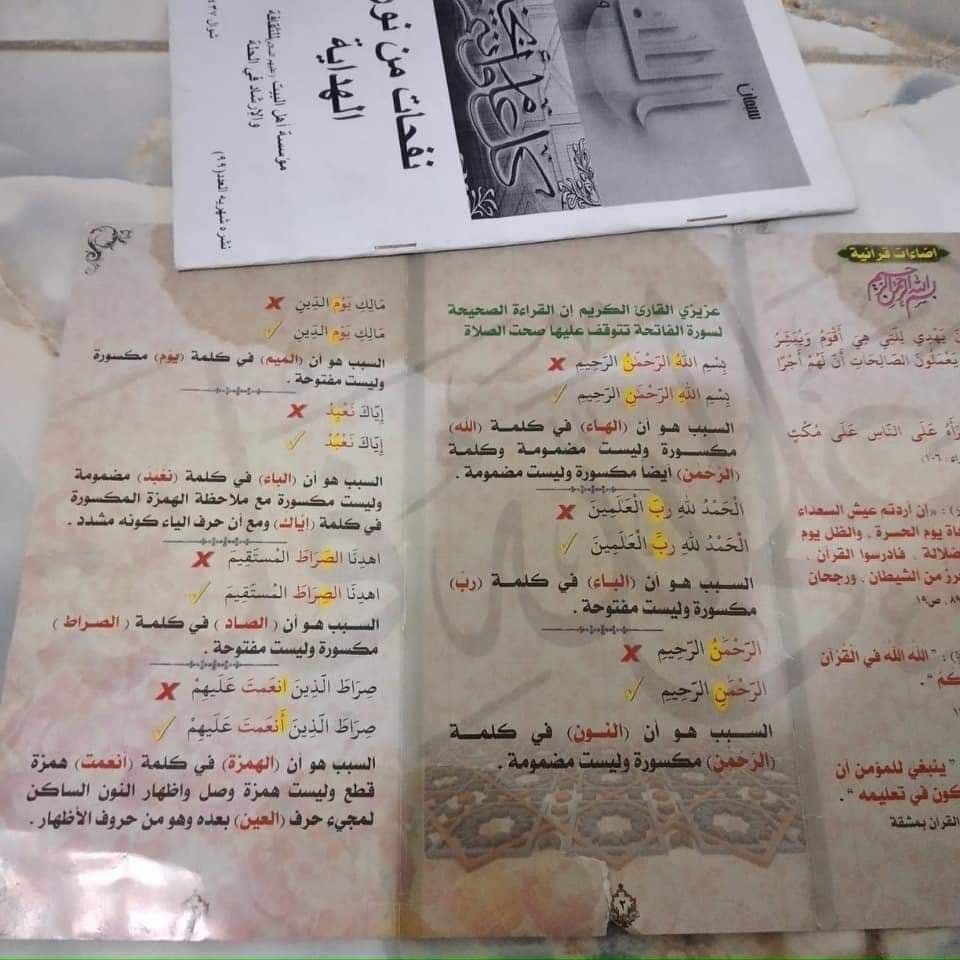 سبحان
الله
نفحات من نور
الهداية
مؤسسة أهل البيت
والإرشاد في الحلة
نشره شهريه العدد(٩٩)
شوال
اضاءات قرآنية
يَهْدِي لِلَّتِي هِيَ أَقْوَمُ وَيُبَشِّرُ
يَعْمَلُونَ الصَّالِحَاتِ أَنَّ لَهُمْ أَجْرًا
عَلَى النَّاسِ عَلَى مُكْثٍ
: «ان أردتم عيش السعداء
يوم الحسرة ، والظل يوم
فادرسوا القرآن ،
من الشيطان ، ورجحان
: " الله الله في القرآن
" ينبغي للمؤمن أن
في تعليمه " .
القرآن بمشقة
عزيزي القارئ الكريم ان القراءة الصحيحة
لسورة الفاتحة تتوقف عليها صحت الصلاة
بِسْمِ اللهُ الرَّحْمَنُ الرَّحِيمِ ✗
بِسْمِ اللهِ الرَّحْمَنِ الرَّحِيمِ ✓
السبب هو أن (الهاء) في كلمة (الله)
مكسورة وليست مضمومة وكلمة
(الرحمن) أيضاً مكسورة وليست مضمومة .
الْحَمْدُ للهِ رَبَّ الْعَلَمِينَ ✗
الْحَمْدُ للهِ رَبِّ الْعَلَمِينَ ✓
السبب هو أن (الباء) في كلمة (رب)
مكسورة وليست مفتوحة .
الرَّحْمَنُ الرَّحِيمِ ✗
الرَّحْمَنِ الرَّحِيمِ ✓
السبب هو أن (النون) في كلمة
(الرحمن) مكسورة وليست مضمومة .
٢
مَالِكِ يَوْمَ الدِّينِ ✗
مَالِكِ يَوْمِ الدِّينِ ✓
السبب هو أن (الميم) في كلمة (يوم) مكسورة
وليست مفتوحة .
إِيَّاكَ نَعْبِدُ ✗
إِيَّاكَ نَعْبُدُ ✓
السبب هو أن (الباء) في كلمة (نعبد) مضمومة
وليست مكسورة مع ملاحظة الهمزة المكسورة
في كلمة (إياك) ومع أن حرف الياء كونه مشدد .
اهدِنَا الصَرَاطَ المُستَقِيمَ ✗
اهدِنَا الصِرَاطَ المُستَقِيمَ ✓
السبب هو أن (الصاد) في كلمة (الصراط)
مكسورة وليست مفتوحة .
صِرَاطَ الَّذِينَ انعَمتَ عَلَيهِمْ ✗
صِرَاطَ الَّذِينَ أَنعَمتَ عَلَيهِمْ ✓
السبب هو أن (الهمزة) في كلمة (أنعمت) همزة
قطع وليست همزة وصل واظهار النون الساكن
لمجيء حرف (العين) بعده وهو من حروف الأظهار .